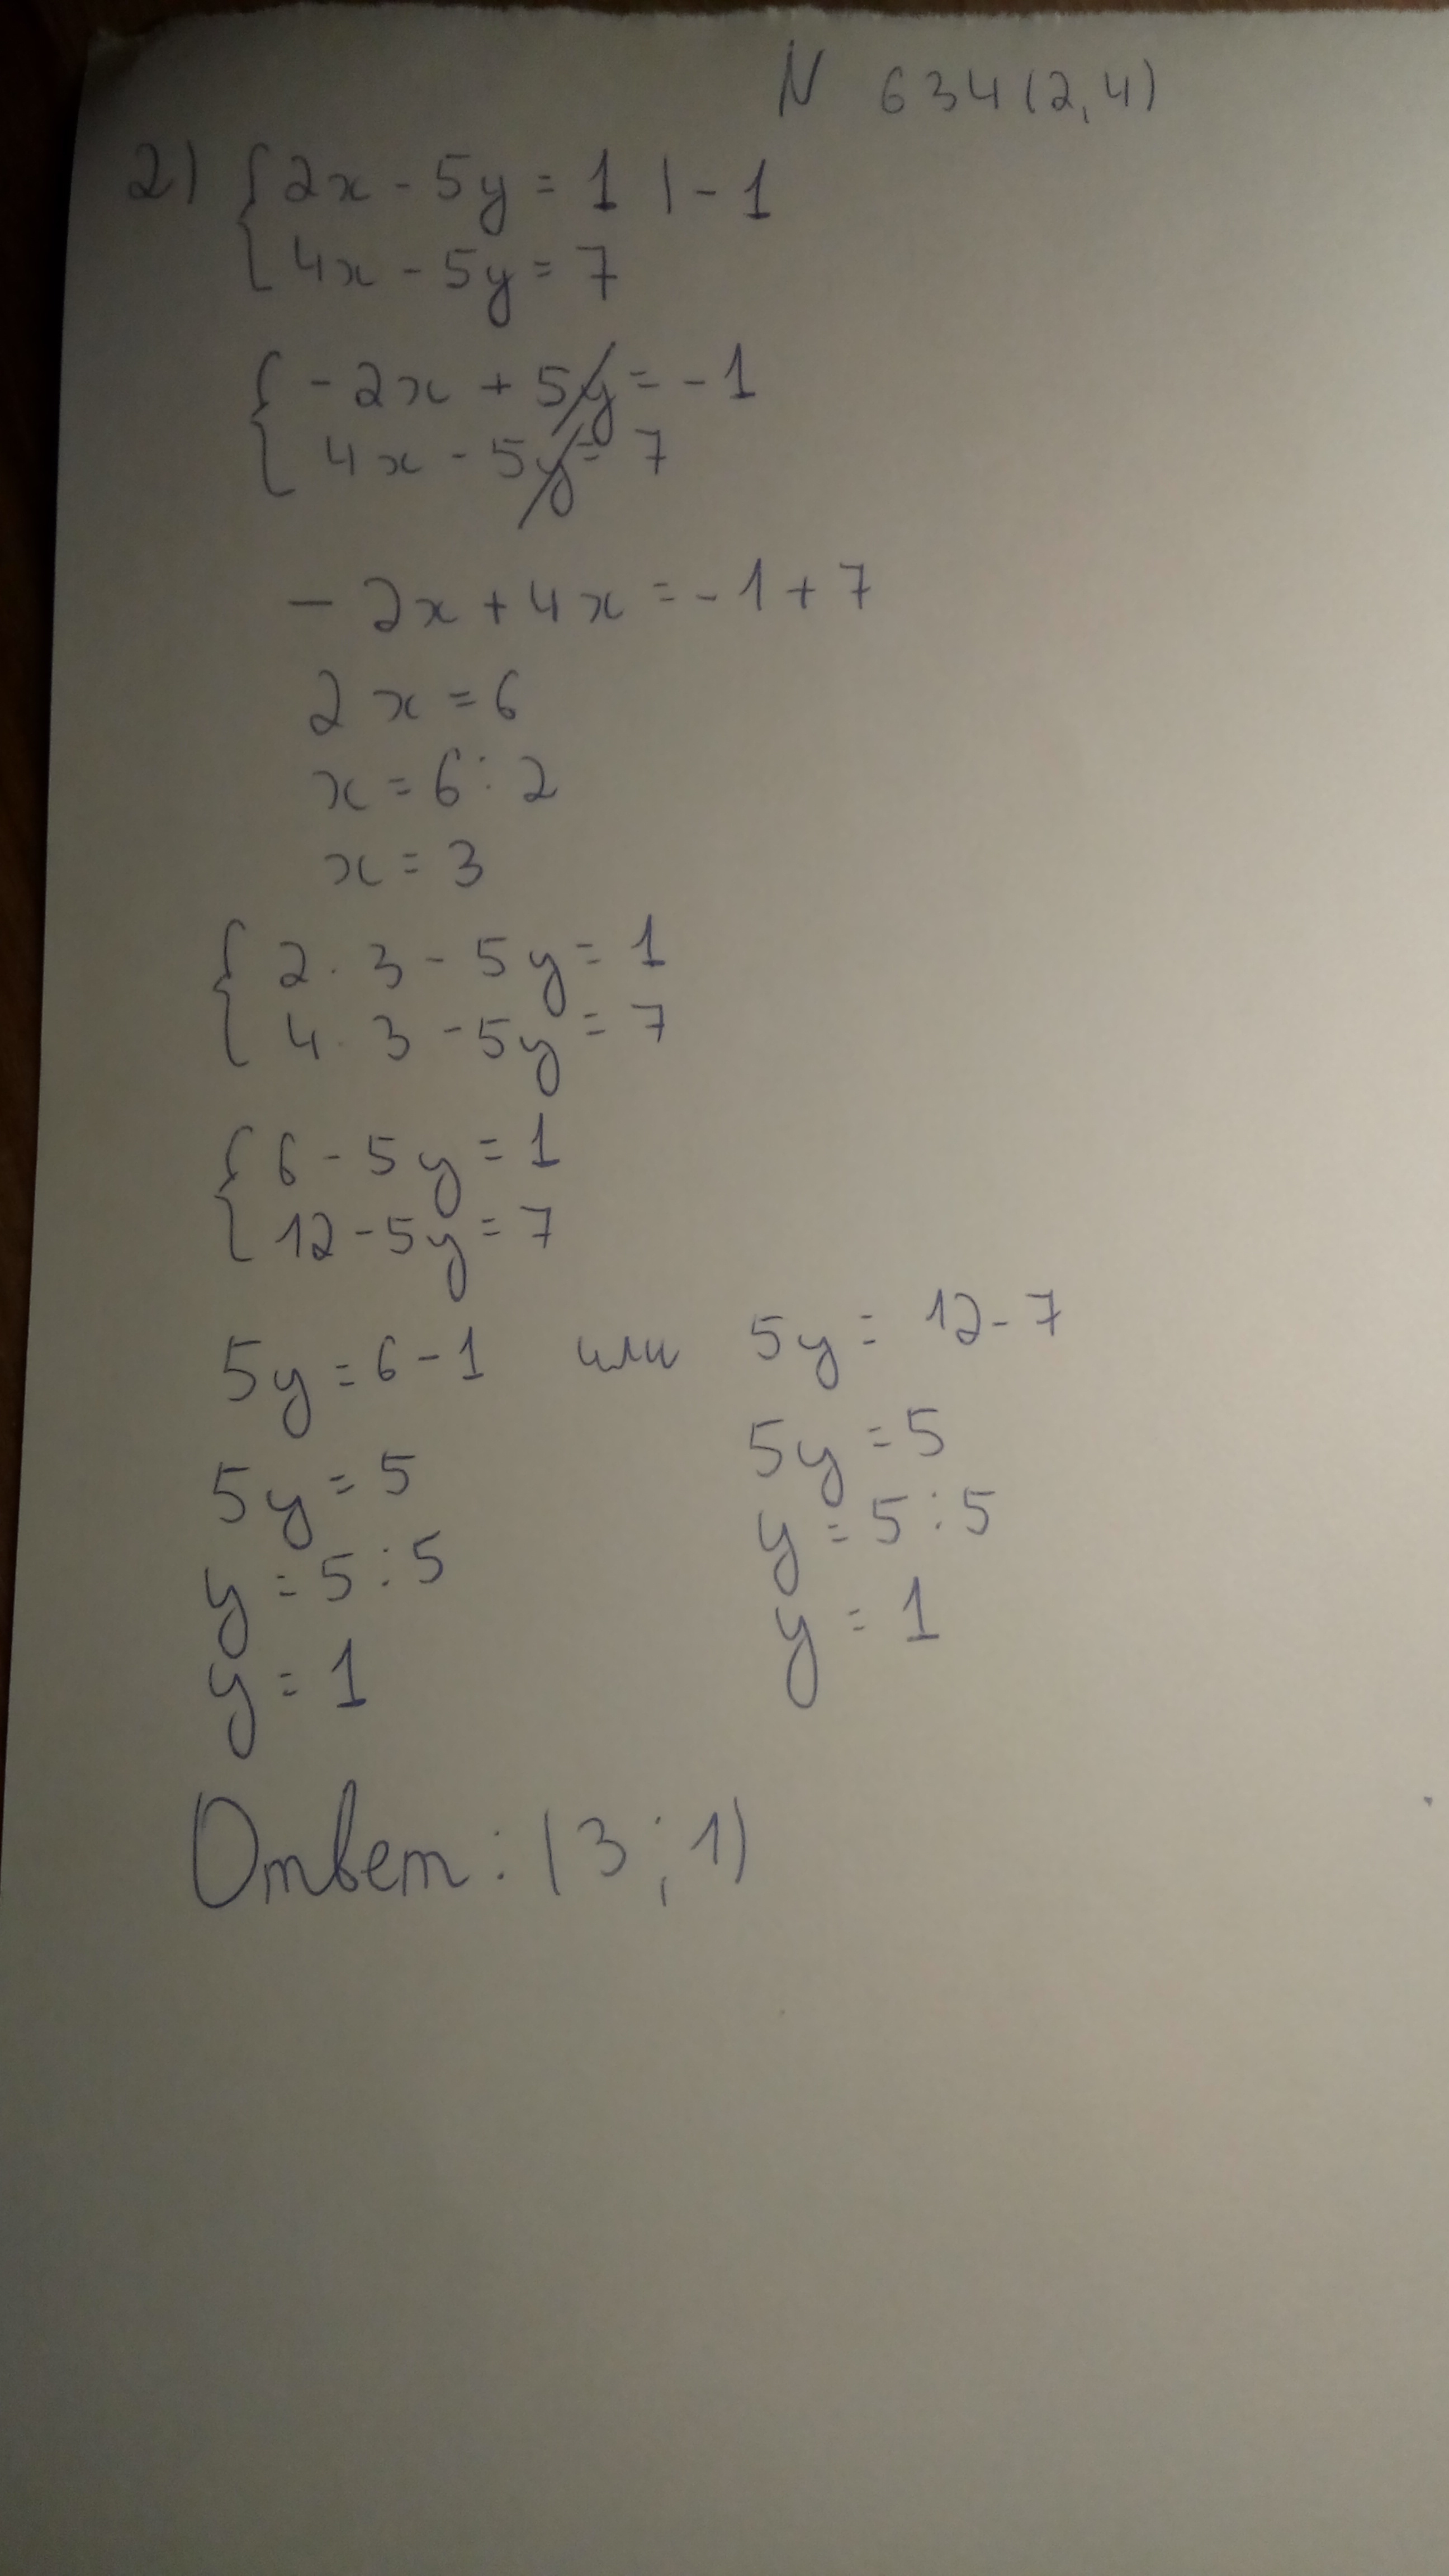 N 634(2,4)
2) { 2x - 5y = 1 | - 1
4x - 5y = 7
{ - 2x + 5y = - 1
4x - 5y = 7
- 2x + 4x = - 1 + 7
2x = 6
x = 6 : 2
x = 3
{ 2 · 3 - 5y = 1
4 · 3 - 5y = 7
{ 6 - 5y = 1
12 - 5y = 7
5y = 6 - 1 или 5y = 12 - 7
5y = 5 5y = 5
y = 5 : 5 y = 5 : 5
y = 1 y = 1
Ответ: (3 ; 1)